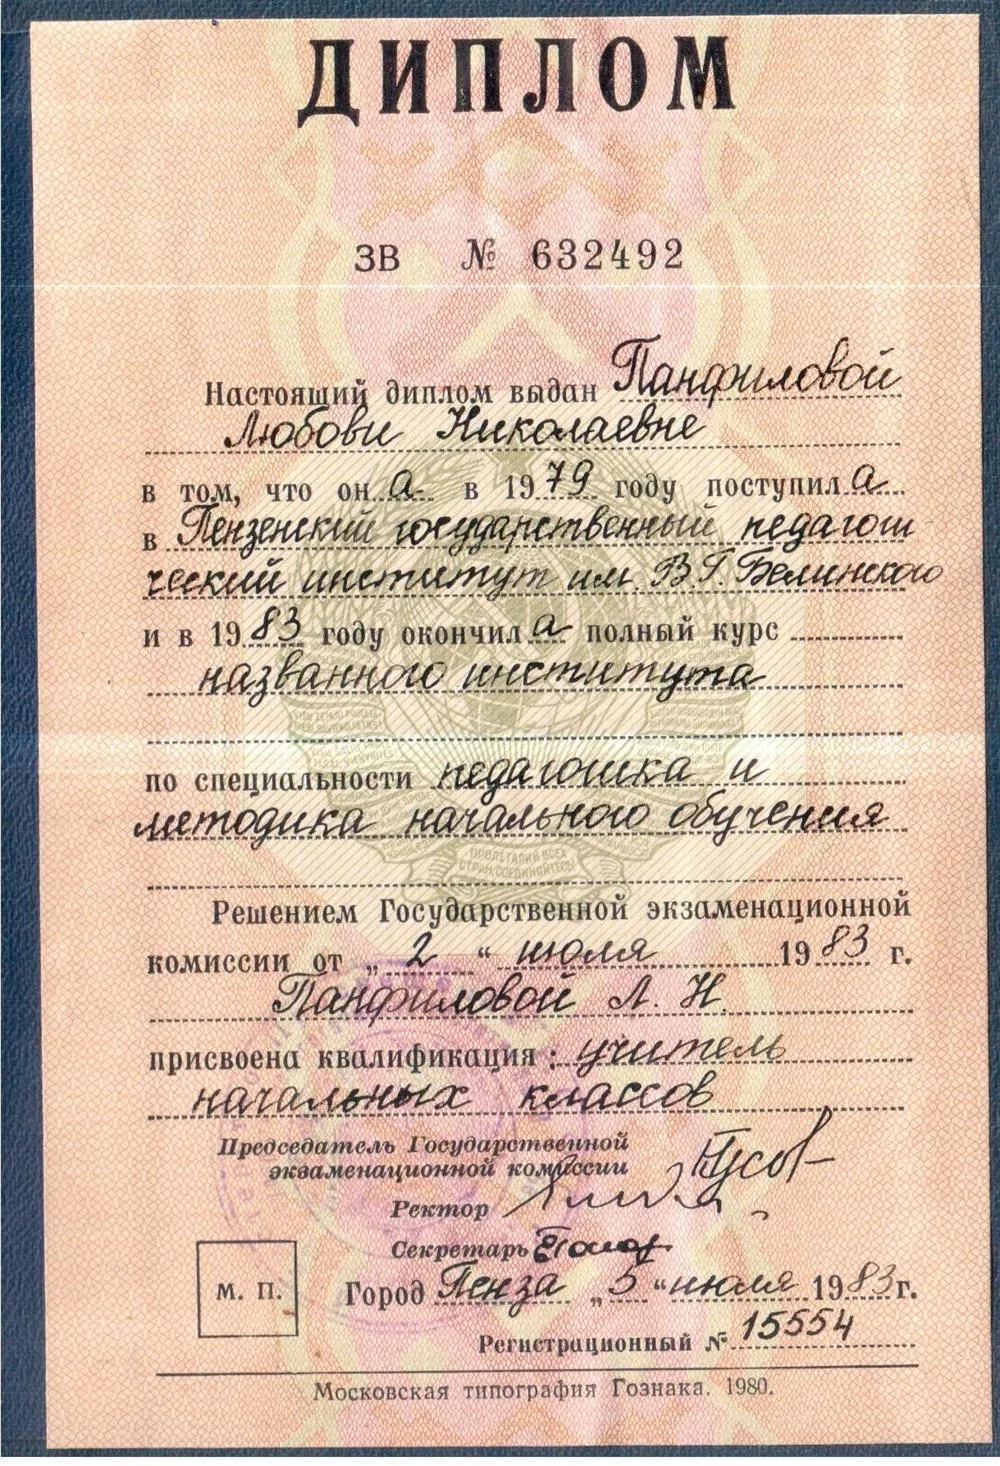 ДИПЛОМ
ЗВ № 632492
Настоящий диплом выдан Панфиловой
Любови Николаевне
в том, что он а в 1979 году поступил а
в Пензенский государственный педагоги
ческий институт им. В.Г. Белинского
и в 1983 году окончил а полный курс
названного института
по специальности педагогика и
методика начального обучения
Решением Государственной экзаменационной
комиссии от „ 2 “ июля 1983 г.
Панфиловой Л. Н.
присвоена квалификация: учитель
начальных классов
Председатель Государственной
экзаменационной комиссии
Ректор
Секретарь
М. П.
Город Пенза „ 5 “ июля 1983 г.
Регистрационный № 15554
Московская типография Гознака. 1980.